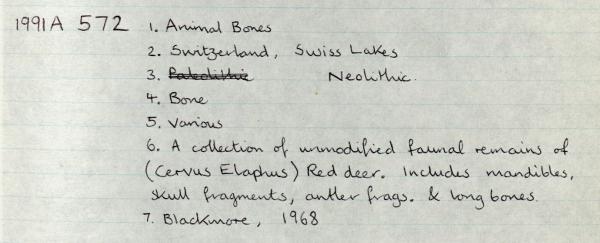 1991A 572 1. Animal Bones
2. Switzerland, Swiss Lakes
3. Paleolithic Neolithic.
4. Bone
5. Various
6. A collection of unmodified faunal remains of
(Cervus Elaphus) Red deer. Includes mandibles,
skull fragments, antler frags. & long bones.
7. Blackmore, 1968